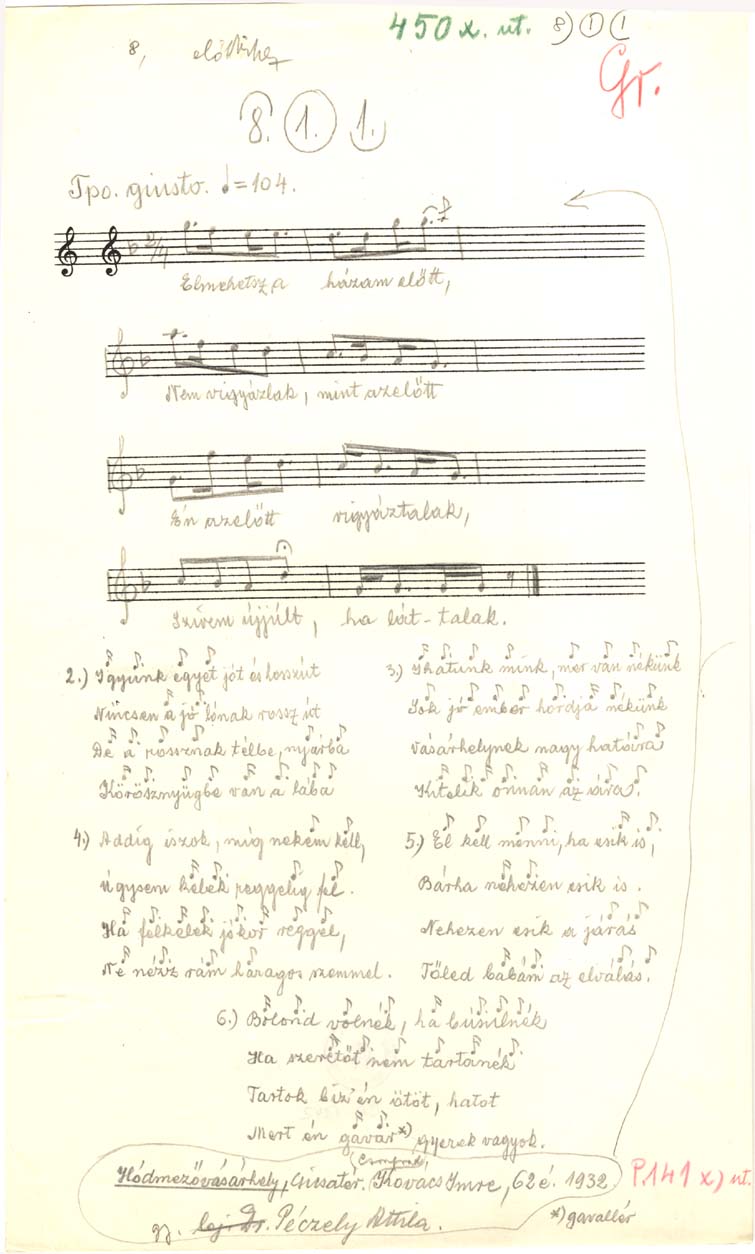 450 x. ut. 8) 1 1
8, előttihez
Gr.
8. 1. 1.
Tpo. giusto. ♩=104.
2/4
Elmehetsz a házam előtt,
Nem vigyázlak, mint azelőtt
Én azelőtt vigyáztalak,
Szívem újjúlt, ha lát-talak.
2.) Igyunk egyet jót és hosszút
Nincsen a jó lónak rossz út
De a rossznak télbe, nyárba
Körösznyűgbe van a lába
3.) Ihatunk mink, mer van nékünk
Sok jó ember hordja nékünk
Vásárhelynek nagy határa
Kitelik onnan az ára.
4.) Addig iszok, míg nekem kell,
úgysem kelek reggelig fel.
Ha felkelek jókor reggel,
Ne nézz rám haragos szemmel.
5.) El kell menni, ha esik is,
Bárha nehezen esik is.
Nehezen esik a járás
Tőled babám az elválás.
6.) Bolond volnék, ha búsulnék
Ha szeretőt nem tartanék
Tartok biz'én ötöt, hatot
Mert én gavar x) gyerek vagyok.
(Csongrád)
Hódmezővásárhely, Kovács Imre, 62 é. 1932.
P.141 x) ut.
gy. Dr. Péczely Attila.
x) gavallér